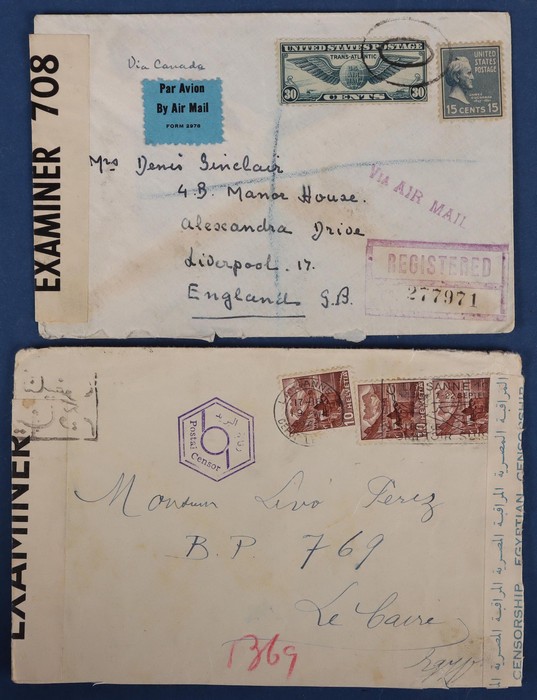 EXAMINER 708
Via Canada
Par Avion
By Air Mail
FORM 2978
UNITED STATES POSTAGE
TRANS-ATLANTIC
30 CENTS 30
UNITED
STATES
POSTAGE
15 CENTS 15
Mrs Denis Sinclair
4.B. Manor House.
Alexandra Drive
Liverpool. 17.
England G.B.
VIA AIR MAIL
REGISTERED
277971
EXAMINER
Postal Censor
6
10
HELVETIA
Monsieur Livó Perez
B.P. 769
Le Caire
Egypt
1369
المراقبة المصرية
CENSORSHIP EGYPTIAN CENSORSHIP